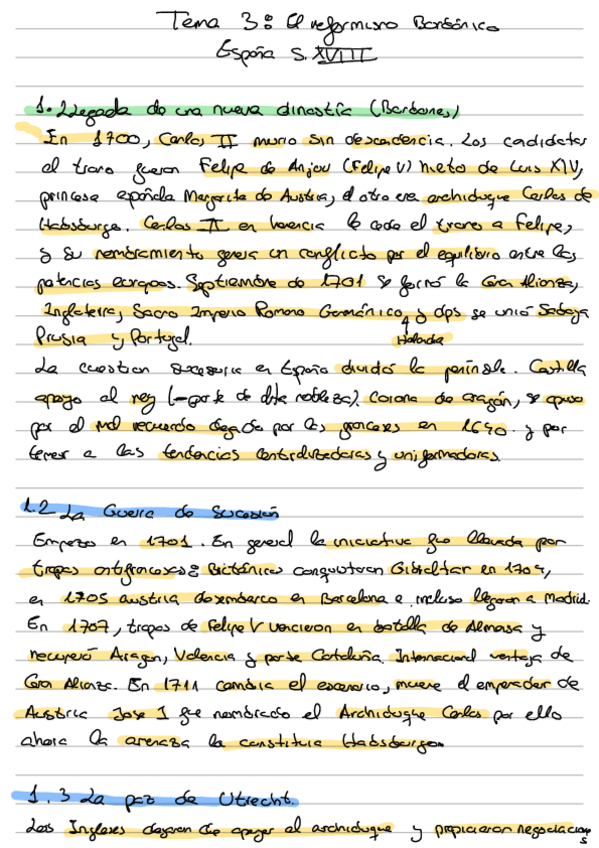 Tema 3: El reformismo Borbónico
España S. XVIII
1. Llegada de una nueva dinastía (Borbones)
En 1700, Carlos II murio sin descendencia. Los candidatos
al trono fueron Felipe de Anjou (Felipe V) nieto de Luis XIV,
princesa española Margarita de Austria, el otro era archiduque Carlos de
Habsburgo. Carlos II en herencia le cede el trono a Felipe,
y su nombramiento genera un conflicto por el equilibrio entre las
potencias europeas. Septiembre de 1701 se formó la Gran Alianza,
Inglaterra, Sacro Imperio Romano Germánico, y dps se unió Saboya
Prusia y Portugal.
Holanda
La cuestion sucesoria en España dividió la peninsula. Castilla
apoyo al rey (-parte de alta nobleza). Corona de aragón, se opuso
por el mal recuerdo dejado por los franceses en 1640. y por
temer a las tendencias centralizadoras y uniformadoras.
1.2 La Guerra de Sucesión
Empezo en 1701. En general la iniciativa fue llevada por
tropas antifrancesas: Británicos conquistaron Gibraltar en 1704,
en 1705 austria desembarco en Barcelona e incluso llegaron a Madrid.
En 1707, tropas de Felipe V vencieron en batalla de Almansa y
recuperó Aragon, Valencia y parte Cataluña. Internacional ventaja de
Gran Alianza. En 1711 cambia el escenario, muere el emperador de
Austria Jose I fue nombrado el Archiduque Carlos por ello
ahora la amenaza la constituia Habsburgo.
1.3 La paz de Utrecht.
Los Ingleses dejaron de apoyar al archiduque y propiciaron negociaciones